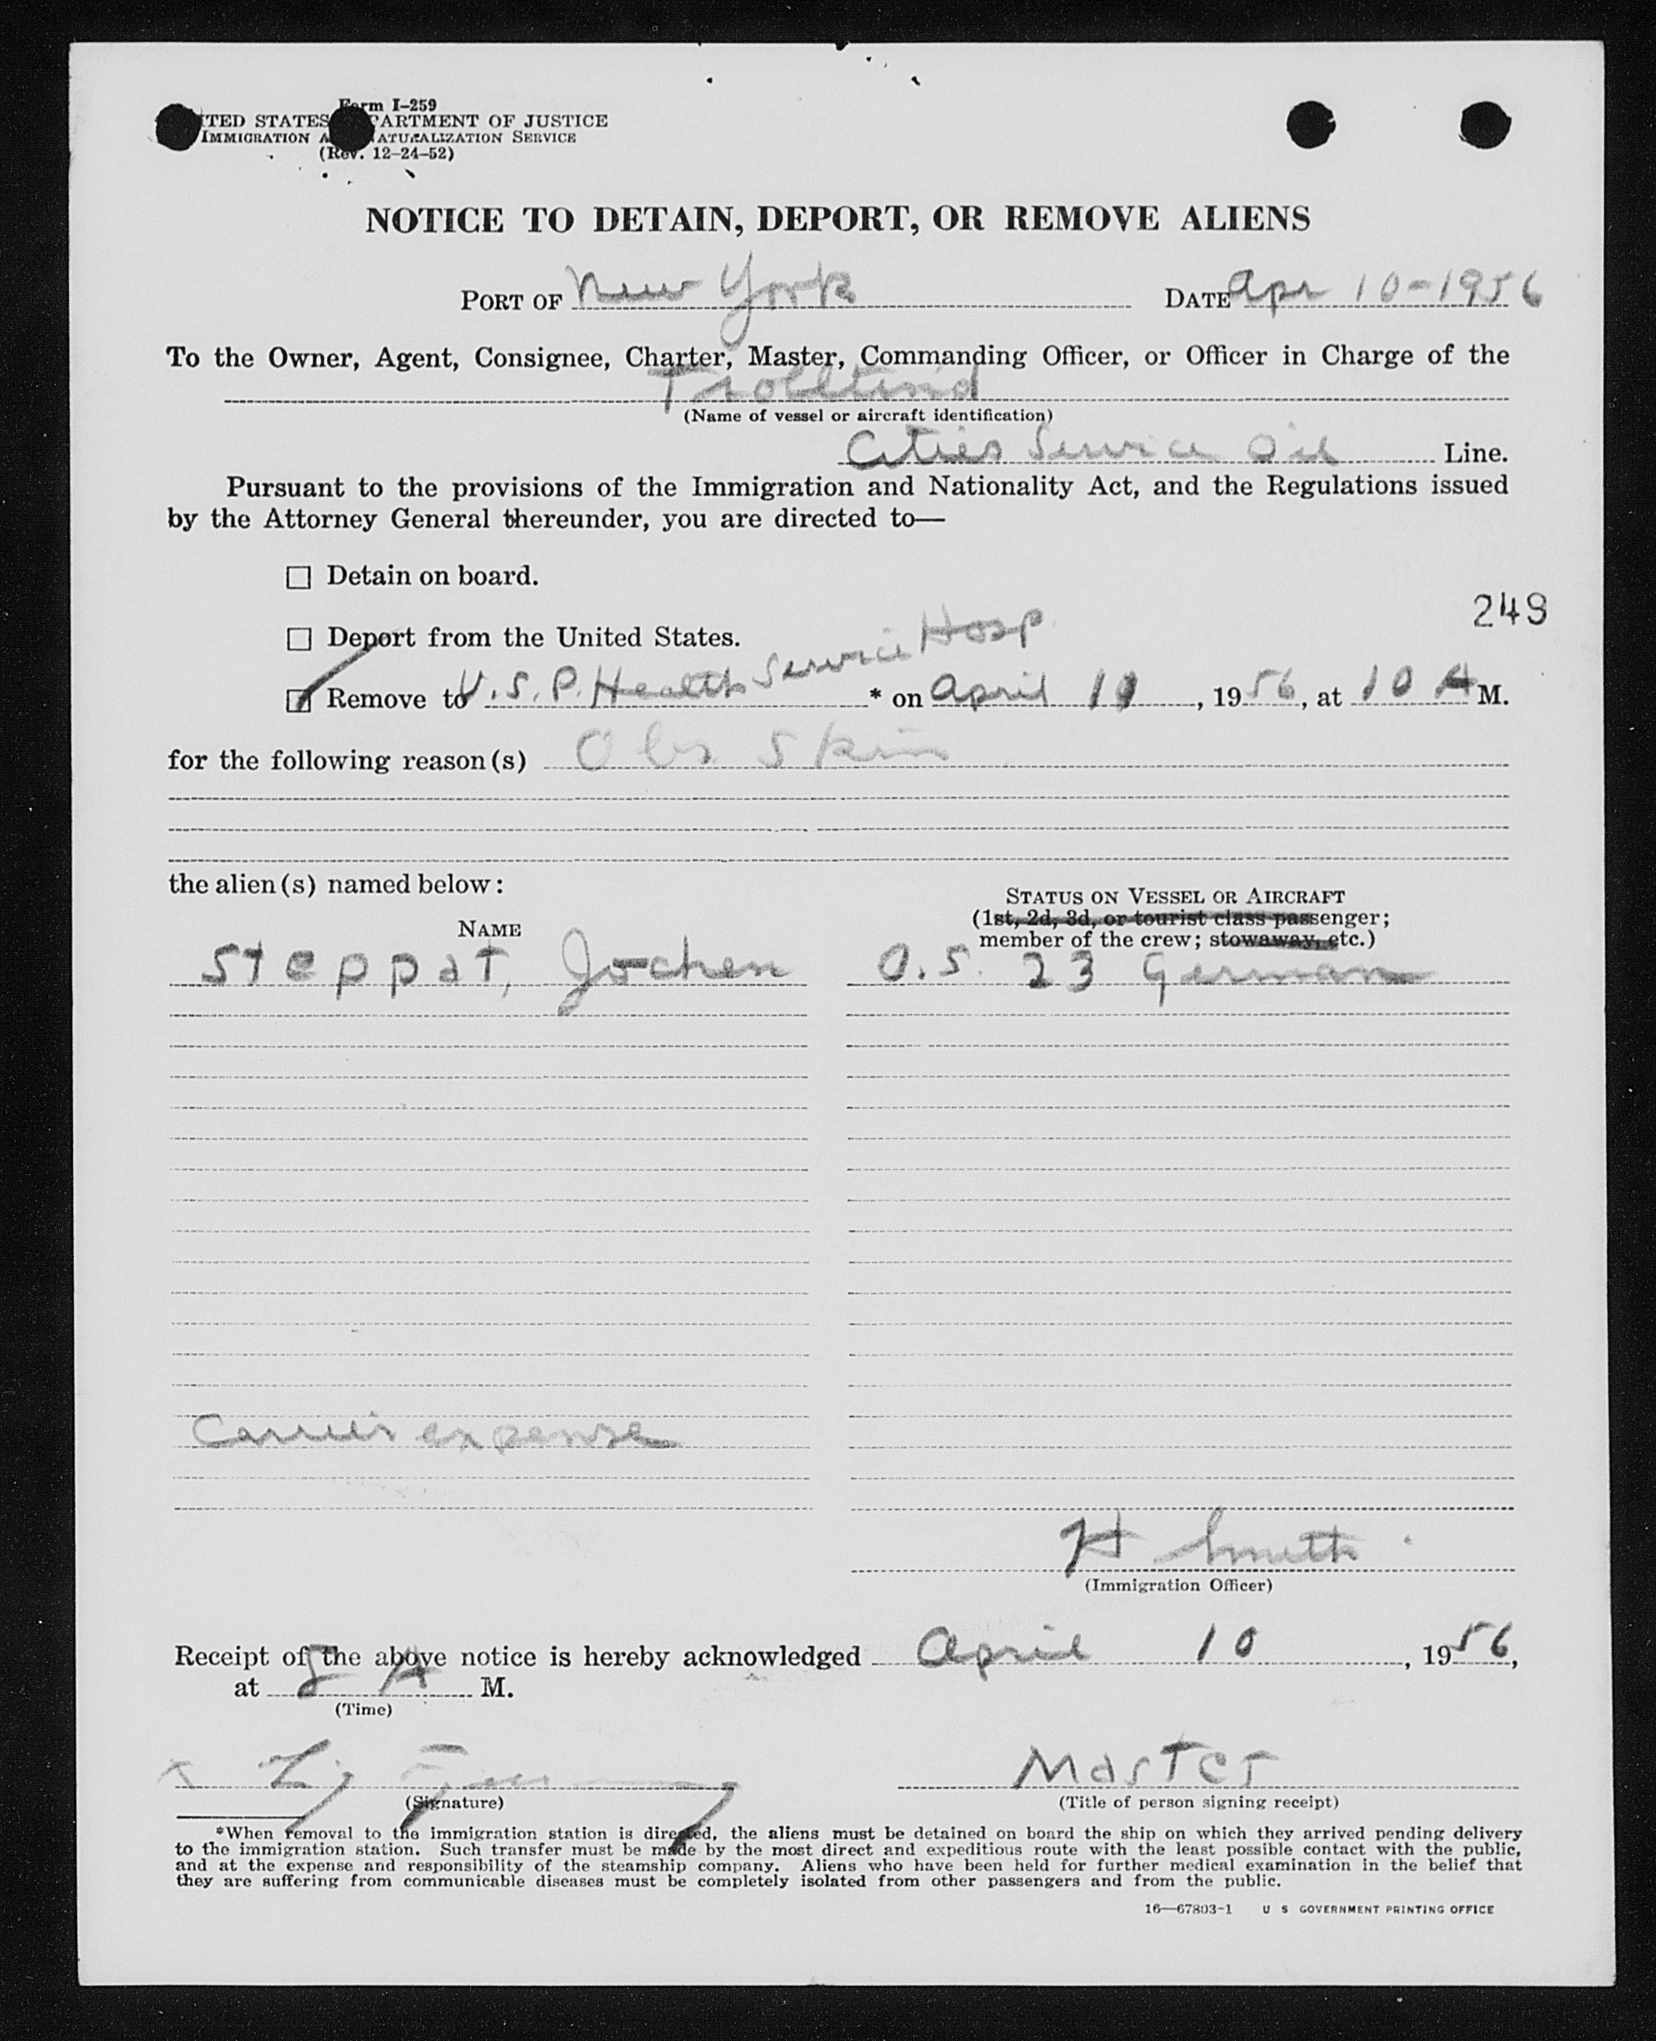 Form I-259
UNITED STATES DEPARTMENT OF JUSTICE
IMMIGRATION AND NATURALIZATION SERVICE
(Rev. 12-24-52)
NOTICE TO DETAIN, DEPORT, OR REMOVE ALIENS
PORT OF New York DATE Apr 10-1956
To the Owner, Agent, Consignee, Charter, Master, Commanding Officer, or Officer in Charge of the
Trolltind
(Name of vessel or aircraft identification)
Cities Service Oil Line.
Pursuant to the provisions of the Immigration and Nationality Act, and the Regulations issued
by the Attorney General thereunder, you are directed to—
☐ Detain on board.
249
☐ Deport from the United States.
☑ Remove to U.S.P. Health Service Hosp * on April 11, 1956, at 10 A M.
for the following reason(s) Obs Skin
the alien(s) named below:
NAME
STATUS ON VESSEL OR AIRCRAFT
(1st, 2d, 3d, or tourist class passenger;
member of the crew; stowaway, etc.)
Steppat, Jochen O.S. 23 German
Carrier expense
H Smith
(Immigration Officer)
Receipt of the above notice is hereby acknowledged April 10, 1956,
at 8 A M.
(Time)
Master
(Signature) (Title of person signing receipt)
*When removal to the immigration station is directed, the aliens must be detained on board the ship on which they arrived pending delivery
to the immigration station. Such transfer must be made by the most direct and expeditious route with the least possible contact with the public,
and at the expense and responsibility of the steamship company. Aliens who have been held for further medical examination in the belief that
they are suffering from communicable diseases must be completely isolated from other passengers and from the public.
16—67803-1 U S GOVERNMENT PRINTING OFFICE